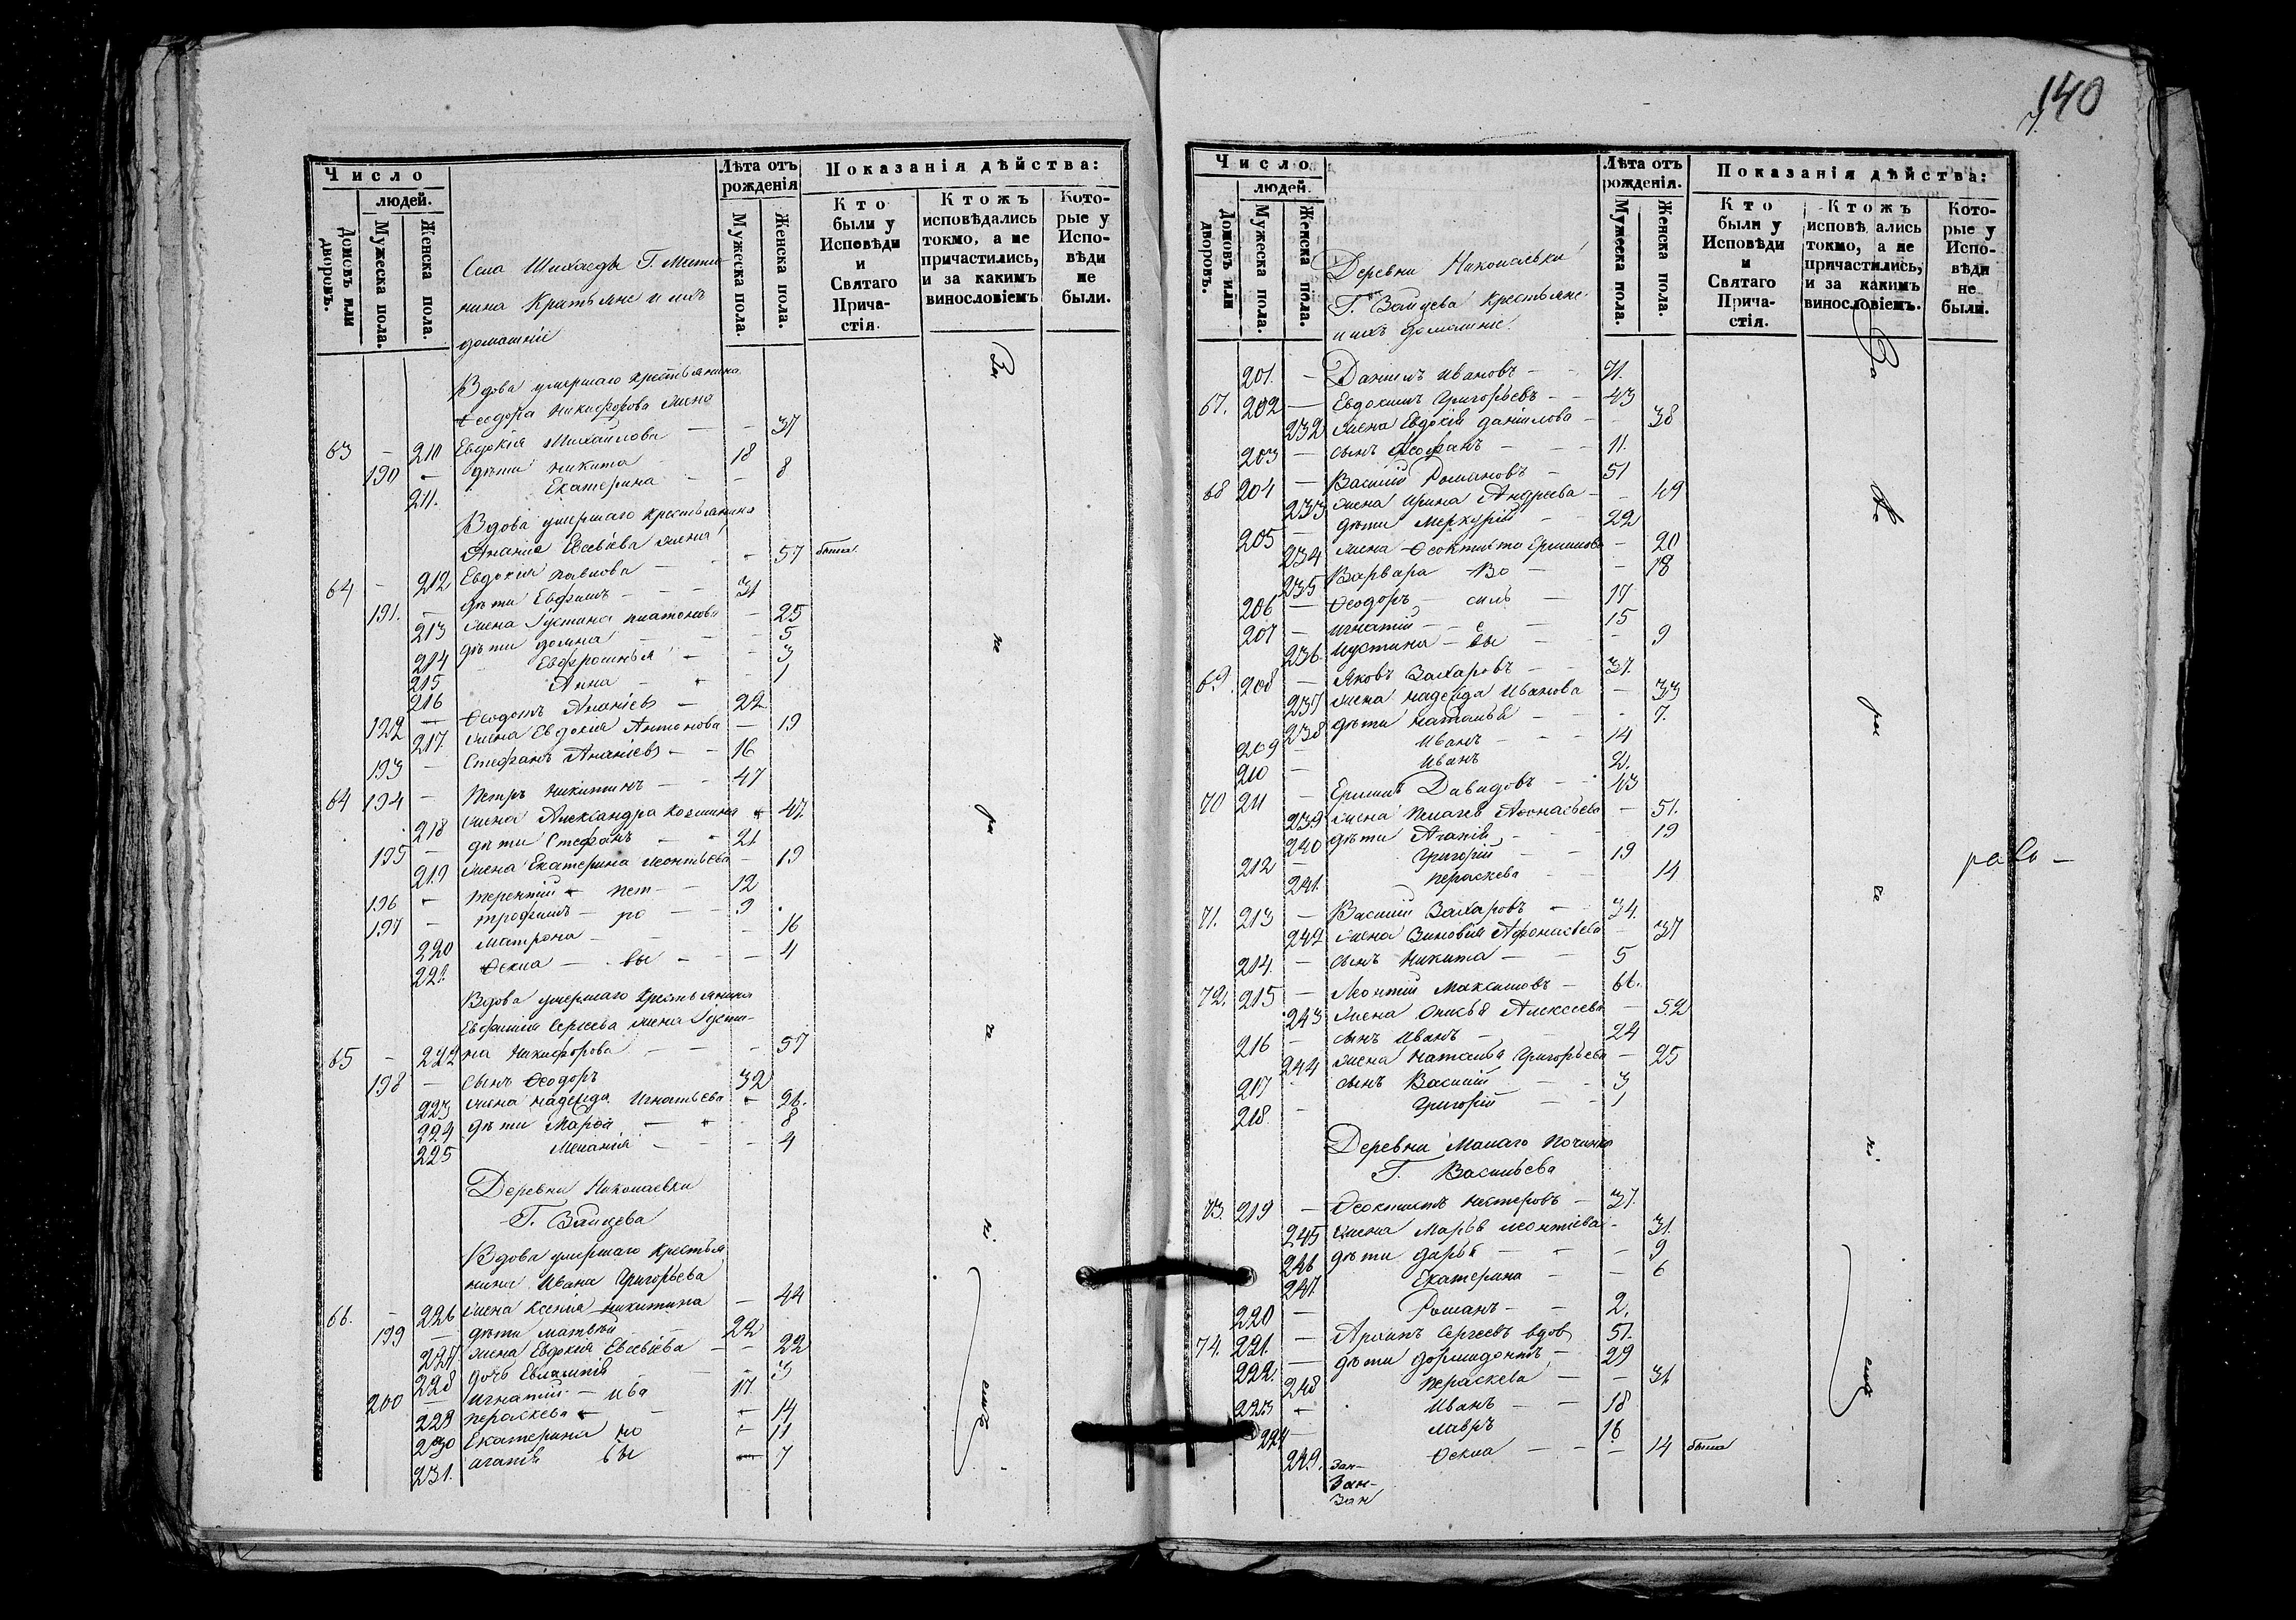 140
Число
людей.
Домовъ или дворовъ.
Мужеска пола.
Женска пола.
Лѣта отъ рожденія
Мужеска пола.
Женска пола.
Показанія дѣйства:
Кто были у Исповѣди и Святаго Прича- стія.
Ктожъ исповѣдались токмо, а не причастились, и за какимъ винословіемъ
Кото- рые у Испо- вѣди не были.
нина Крестьяне и ихъ
домашніе
Вдова умершаго крестьянина
Ѳеодора Никифорова жена
63 - 210 Евдокія Михайлова - - 37
190 - дѣти Никита - 18
211. Екатерина - - 8
Вдова умершаго крестьянина
Ананіе Евсевіева жена
64 - 212 Евдокія Павлова - - 57 была
191. - дѣти Евфимъ - - 31
213 жена Іустина Платонова - 25
214 дѣти Домна - - 5
215 Евфросинья - - 3
216 Анна - - 1
192 - Ѳеодотъ Ананіевъ - 22
217 жена Евдокія Антонова - 19
193 - Стефанъ Ананіевъ - - 16
64 194 - Петръ Никитинъ - - 47
218 жена Александра Козмина - 47
195 - дѣти Стефанъ - 21
219 жена Екатерина Леонтьева - 19
196 - Терентій - Пет - 12
197 - Трофимъ - ро - 9
220 Матрона - - 16
221. Ѳекла - вы - - 4
Вдова умершаго крестьянина
Евфимія Сергеева жена Іусти-
65 - 222 на Никифорова - - 57
198 - сынъ Ѳеодоръ 32
223 жена Надежда Игнатьева - 26.
224 дѣти Марѳа - - 8
225 Меланія - - 4
Деревни Николаевки
Г. Зайцева
Вдова умершаго крестья
нина Ивана Григорьева
66. - 226 жена Ксенія Никитина - 44
199 - дѣти Матвѣй - 22
227 жена Евдокія Евсевіева - - 22
228 дочь Евлампія - 3
200 - Игнатій - Ива 17
229 Пераскева - - 14
230 Екатерина но - 11
231. Агапія вы - 7
Число
людей.
Домовъ или дворовъ.
Мужеска пола.
Женска пола.
Деревни Николаевки
Г. Зайцева крестьяне
и ихъ домашніе.
Лѣта отъ рожденія.
Мужеска пола.
Женска пола.
Показанія дѣйства:
Кто были у Исповѣди и Святаго Прича- стія.
Ктожъ исповѣ ались токмо, а не причастились, и за какимъ винословіемъ.
Кото- рые у Испо- вѣди не были.
201. - Даніилъ Ивановъ - - 71.
67. 202 - Евдокимъ Григорьевъ - - 43
232 жена Евдокія Даніилова - - 38
203 - сынъ Ѳеофанъ - - 11.
68 204 - Василій Романовъ - 51
233 жена Ирина Андреева - - 49
205 - дѣти Меркурій - - 22
234 жена Ѳеоктиста Ермилова - 20
235 Варвара - Ва - - 18
206 - Ѳеодоръ - силь - 17
207 - Игнатій - е - 15
236. Иустина - вы - - 9
69. 208 - Яковъ Захаровъ - - 37.
237 жена Надежда Иванова - 33
238 дѣти Наталья - - 7.
209 - Иванъ - - 14
210 - Иванъ 2.
70 211 - Ермилъ Давидовъ - - 43
239 жена Пелагея Аѳонасьева - 51.
240 дѣти Агапія - - 19
212 - Григорій - - 19
241. Пераскева - - 14
71. 213 - Василій Захаровъ - 34.
242 жена Зиновія Афонасьева - 37
214. - сынъ Никита - - 5
72. 215 - Леонтій Максимовъ - 66.
243 жена Алексеева - 52
216 - сынъ Иванъ - - 24
244 жена Наталья Григорьева - 25
217 сынъ Василій - - 3
218. - Григорій - - 1
Деревни Малаго Починка
Г. Васильева
73. 219 - Ѳеоктистъ Нестеровъ - 37.
245 жена Марья Леонтіева - 31.
246 дѣти Дарья - - 9
247. Екатерина - - 6
220 - Романъ - - 2.
74. 221. - Архипъ Сергеевъ вдов 51.
222. - дѣти Дормидонтъ - 29
248 Пераскева - - 31
223 - Иванъ - - 18
224 - Лавръ 16
249. Ѳекла - - 14 была
Зан-
Зан-
Зан
За
не
ра
че
ні
емъ
За
не
ра
че
ні
емъ